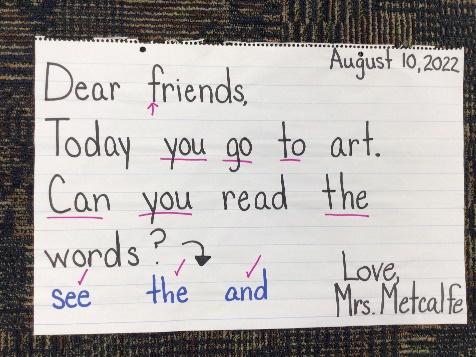 August 10, 2022
Dear friends,
Today you go to art.
Can you read the
words?
see the and
Love,
Mrs. Metcalfe